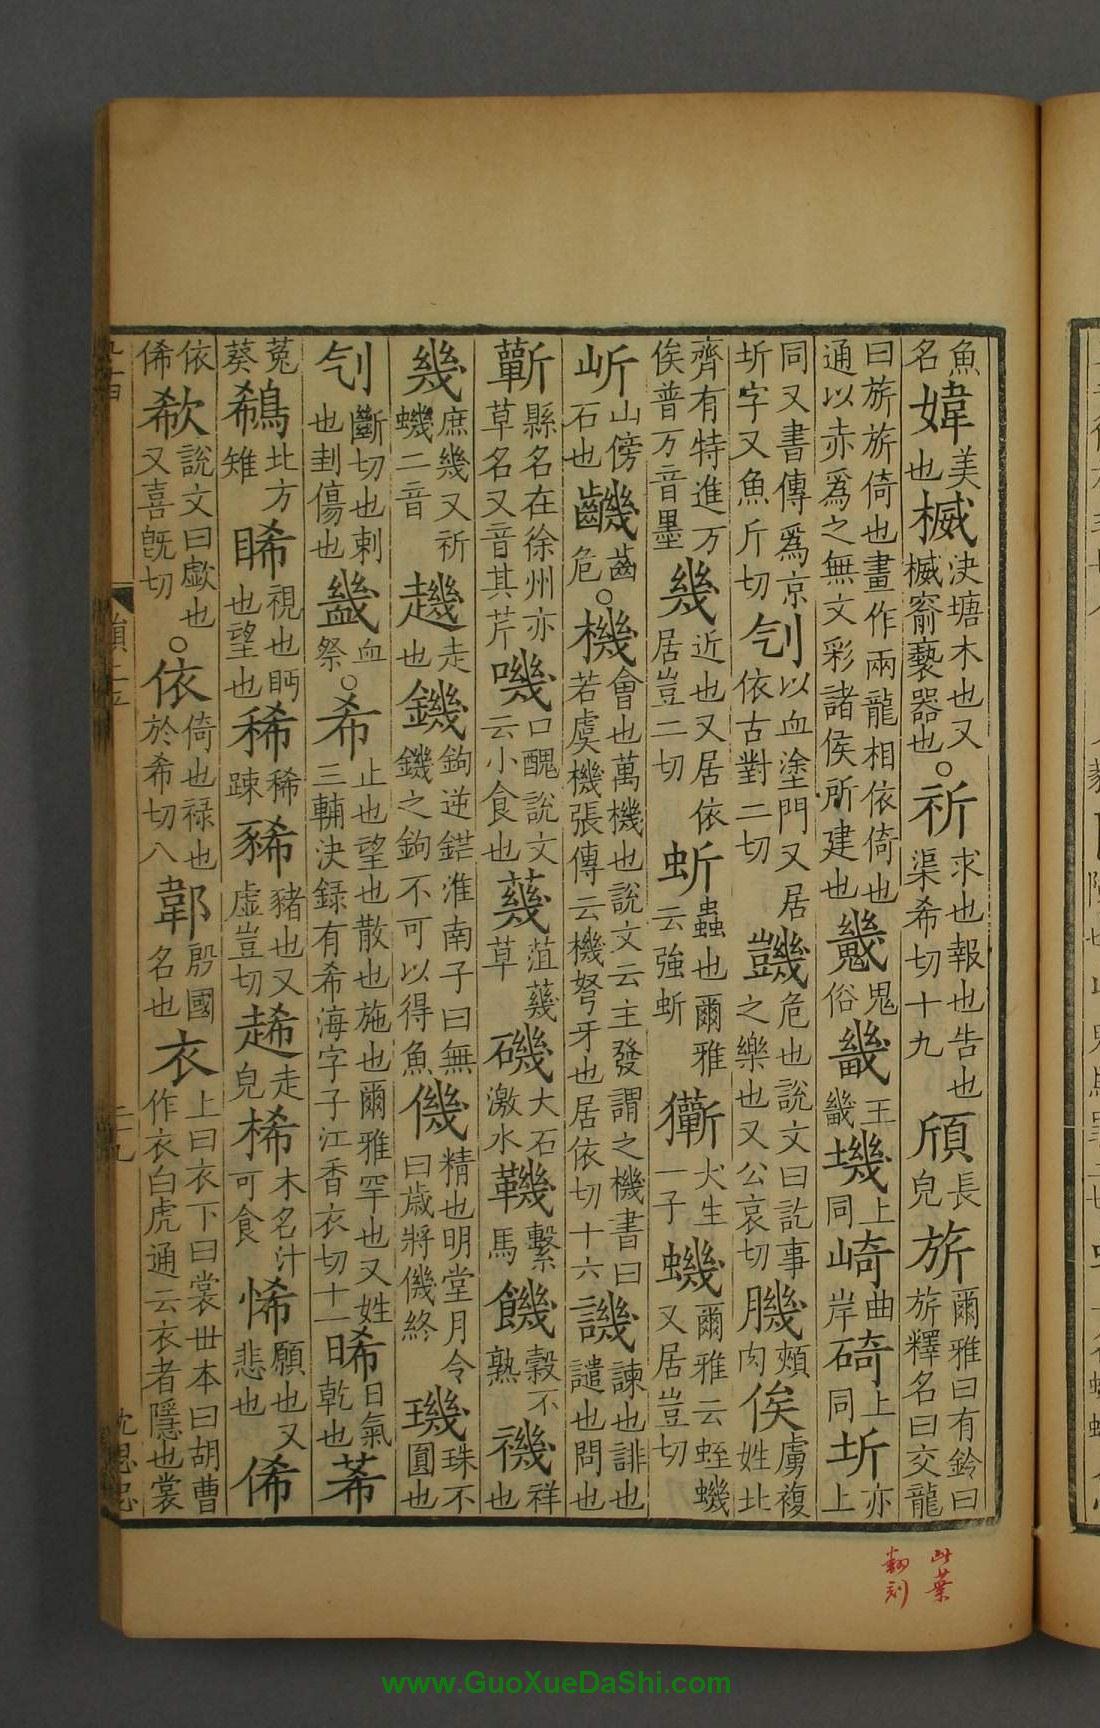 魚名媁美也楲決塘木也又楲窬褻器也。祈求也報也告也渠希切十九頎長皃旂爾雅曰有鈴曰旂釋名曰交龍
曰旂旂倚也畫作兩龍相依倚也通以赤爲之無文彩諸侯所建也䰇鬼俗畿王畿㙨上同崎曲岸碕上同圻亦上
同又書傳爲京圻字又魚斤切刉以血塗門又居依古對二切𧯷危也說文曰訖事之樂也又公哀切䐚頰肉俟虜複姓北
齊有特進万俟普万音墨幾近也又居依居豈二切蚚蟲也爾雅云強蚚㺔犬生一子蟣爾雅云蛭蟣又居豈切
㟚山傍石也䶓齒危。機會也萬機也說文云主發謂之機書曰若虞機張傳云機弩牙也居依切十六譏諫也誹也譴也問也
蘄縣名在徐州亦草名又音其芹嘰口醜說文云小食也蘶菹蘶草磯大石激水鞿繫馬饑穀不熟禨祥也
幾庶幾又祈蟣二音䟇走也鐖鉤逆鋩淮南子曰無鐖之鉤不可以得魚僟精也明堂月令曰歲將僟終璣珠不圓也
刉斷切也刺也刲傷也𧗊血祭。希止也望也散也施也爾雅罕也又姓三輔決録有希海字子江香衣切十一晞日氣乾也莃
菟葵鵗北方雉睎視也眄也望也稀稀踈豨豬也又虛豈切走皃桸木名汁可食悕願也又悲也俙
依俙欷說文曰歔也又喜旣切。依倚也禄也於希切八郼殷國名也衣上曰衣下曰裳世本曰胡曹作衣白虎通云衣者隱也裳
韻上平
二十九
沈思忠
此葉
翻刻
www.GuoXueDaShi.com